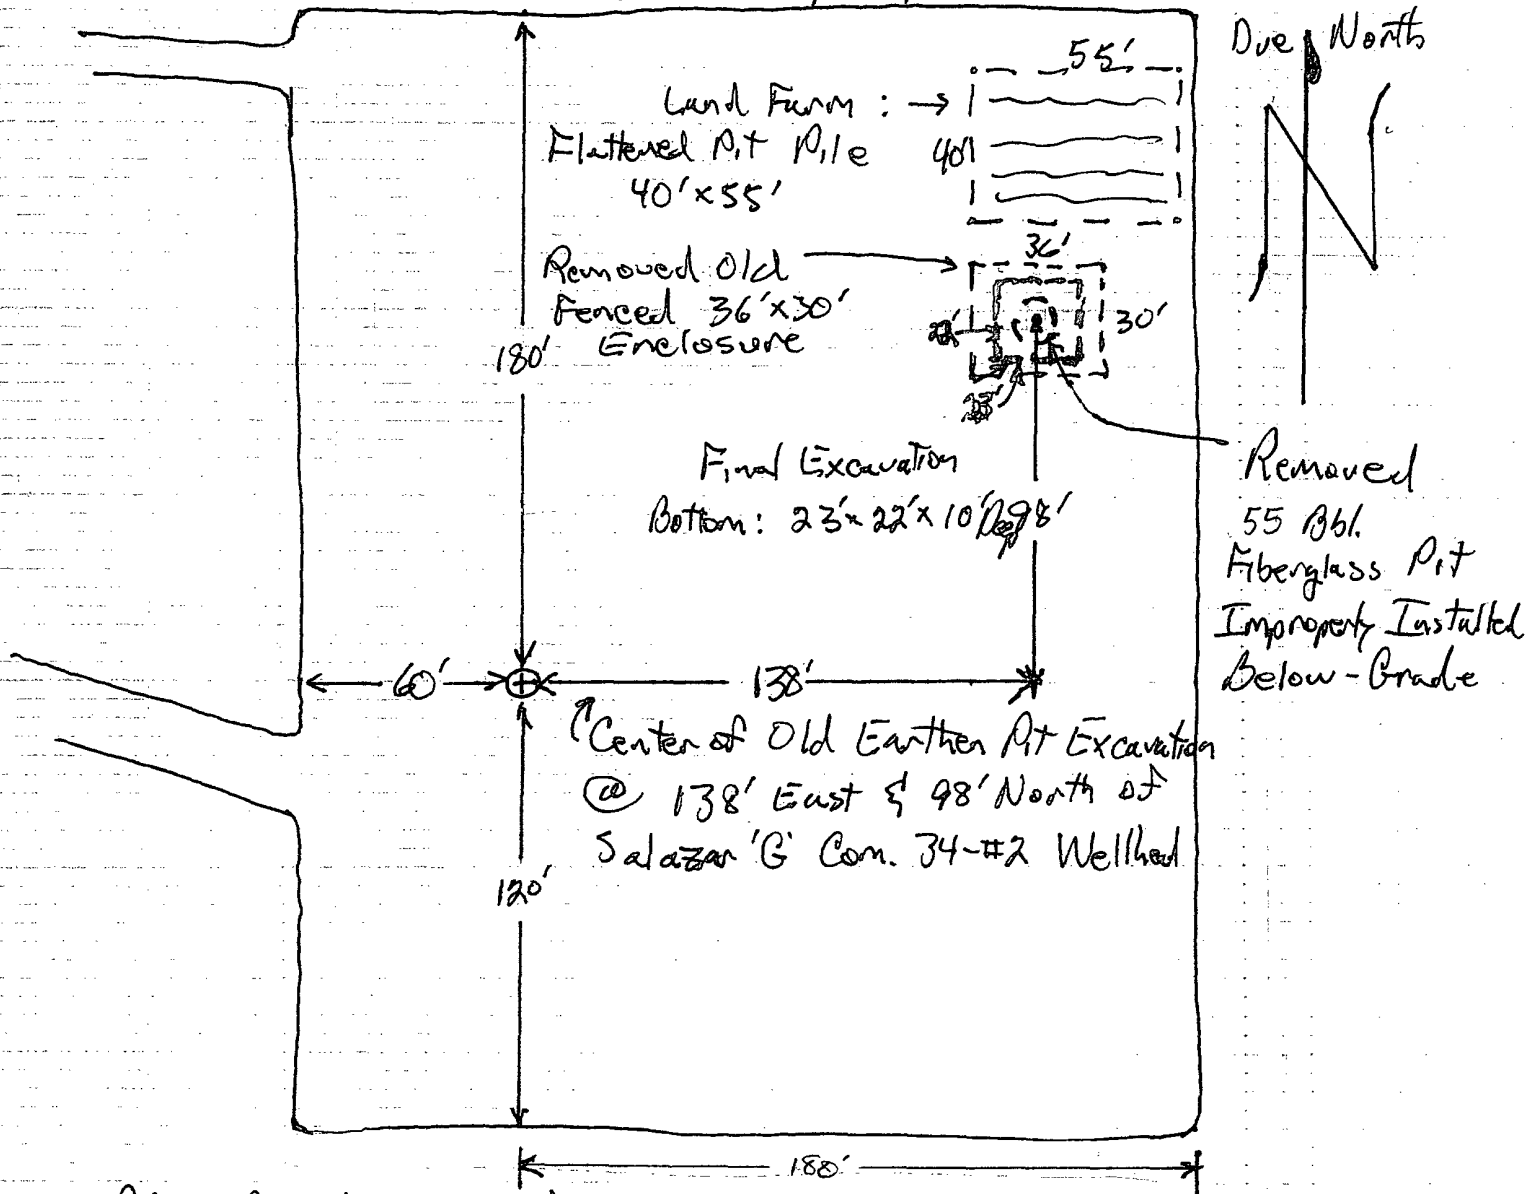 Due North
N
55'
Land Farm :
Flattened Pit Pile
40'x55'
40'
Removed Old
Fenced 36'x30'
Enclosure
36'
30'
22'
180'
Final Excavation
Bottom: 23'x 22'x 10' Deep
98'
Removed
55 Bbl.
Fiberglass Pit
Improperly Installed
Below-Grade
60'
138'
Center of Old Earthen Pit Excavation
@ 138' East & 98' North of
Salazar 'G' Com. 34-#2 Wellhead
120'
180'